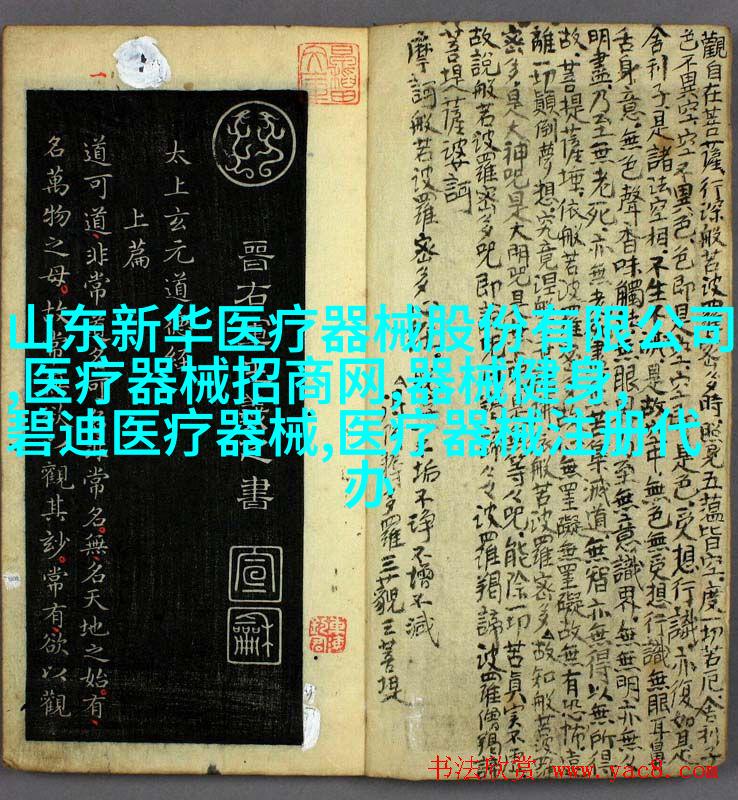 山东新华医疗器械股份有限公司
,医疗器械招商网,器械健身,
碧迪医疗器械,医疗器械注册代
办
觀自在菩薩行深般若波羅蜜多時照見五蘊皆空度一切苦厄舍利子
色不異空空不異色色即是空是色受想行識亦復如是
舍利子是諸法空相不生是故空中無色無受想行識無眼耳鼻
舌身意無色聲香味觸眼界至無意識界無無明亦無
明盡乃至無老死亦無老苦集滅道無智亦無得以無所得
故菩提薩埵依般若波羅蜜多無罣礙無罣礙故無有恐怖遠
離一切顛倒夢想究竟涅槃故知般若波羅
密多是大神咒是大明咒是等々咒能除一切苦真實不虛
故說般若波羅密多咒即說波羅羯諦波羅僧羯諦
菩提薩婆訶
摩訶般若波羅密多
垢不淨不增不減
羅三藐三菩提
晉右之書
太上玄元道經
上篇
道可道非常常名無名天地之始有
名萬物之母故常觀其妙常有欲以觀
宣
龢
书法欣赏 www.yac8.com